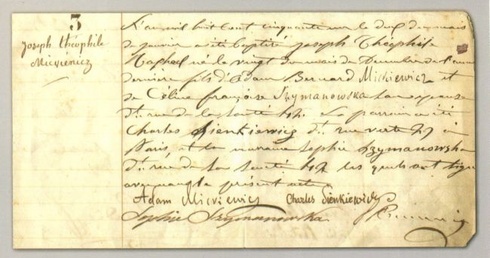 3
Joseph Théophile
Micvienicz
L'an mil huit cent cinquante un le dix du mois
de janvier a été baptisé Joseph Théophile
Raphael né le vingt du mois de Décembre de l'année
dernière fils d'Adam Bernard Mickiewicz et
de Céline françoise Szymanowska son épouse
dt. rue de la Santé 42. Le parrain a été
Charles Sienkiewicz dt. rue verte à
Paris, et la marraine Sophie Szymanowska
dt. rue de la Santé 42 lesquels ont signé
avec nous le présent acte.
Adam Mickiewicz Charles Sienkiewicz
Sophie Szymanowska